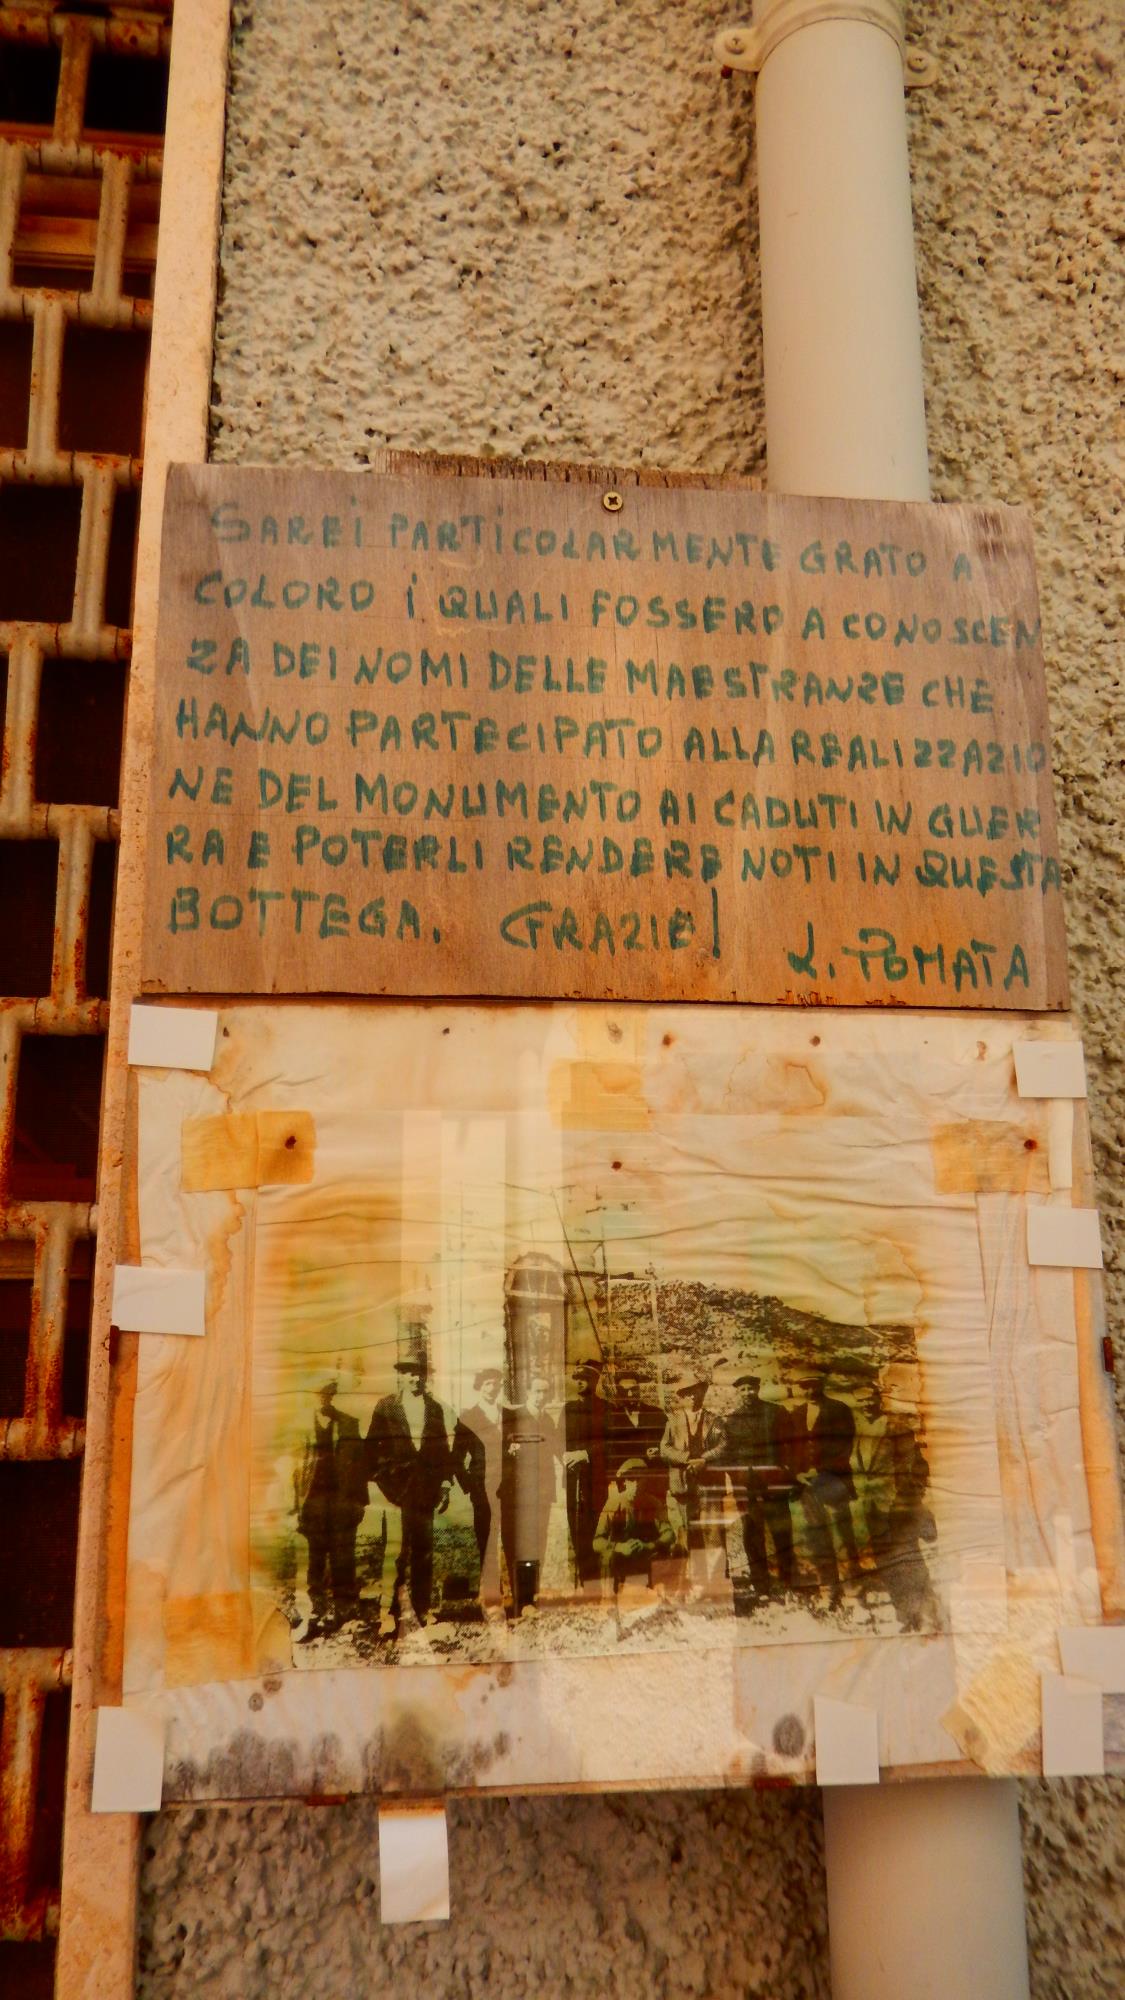 SAREI PARTICOLARMENTE GRATO A
COLORO I QUALI FOSSERO A CONOSCEN
ZA DEI NOMI DELLE MAESTRANZE CHE
HANNO PARTECIPATO ALLA REALIZZAZIO
NE DEL MONUMENTO AI CADUTI IN GUER
RA E POTERLI RENDERE NOTI IN QUESTA
BOTTEGA. GRAZIE!
L. POMATA